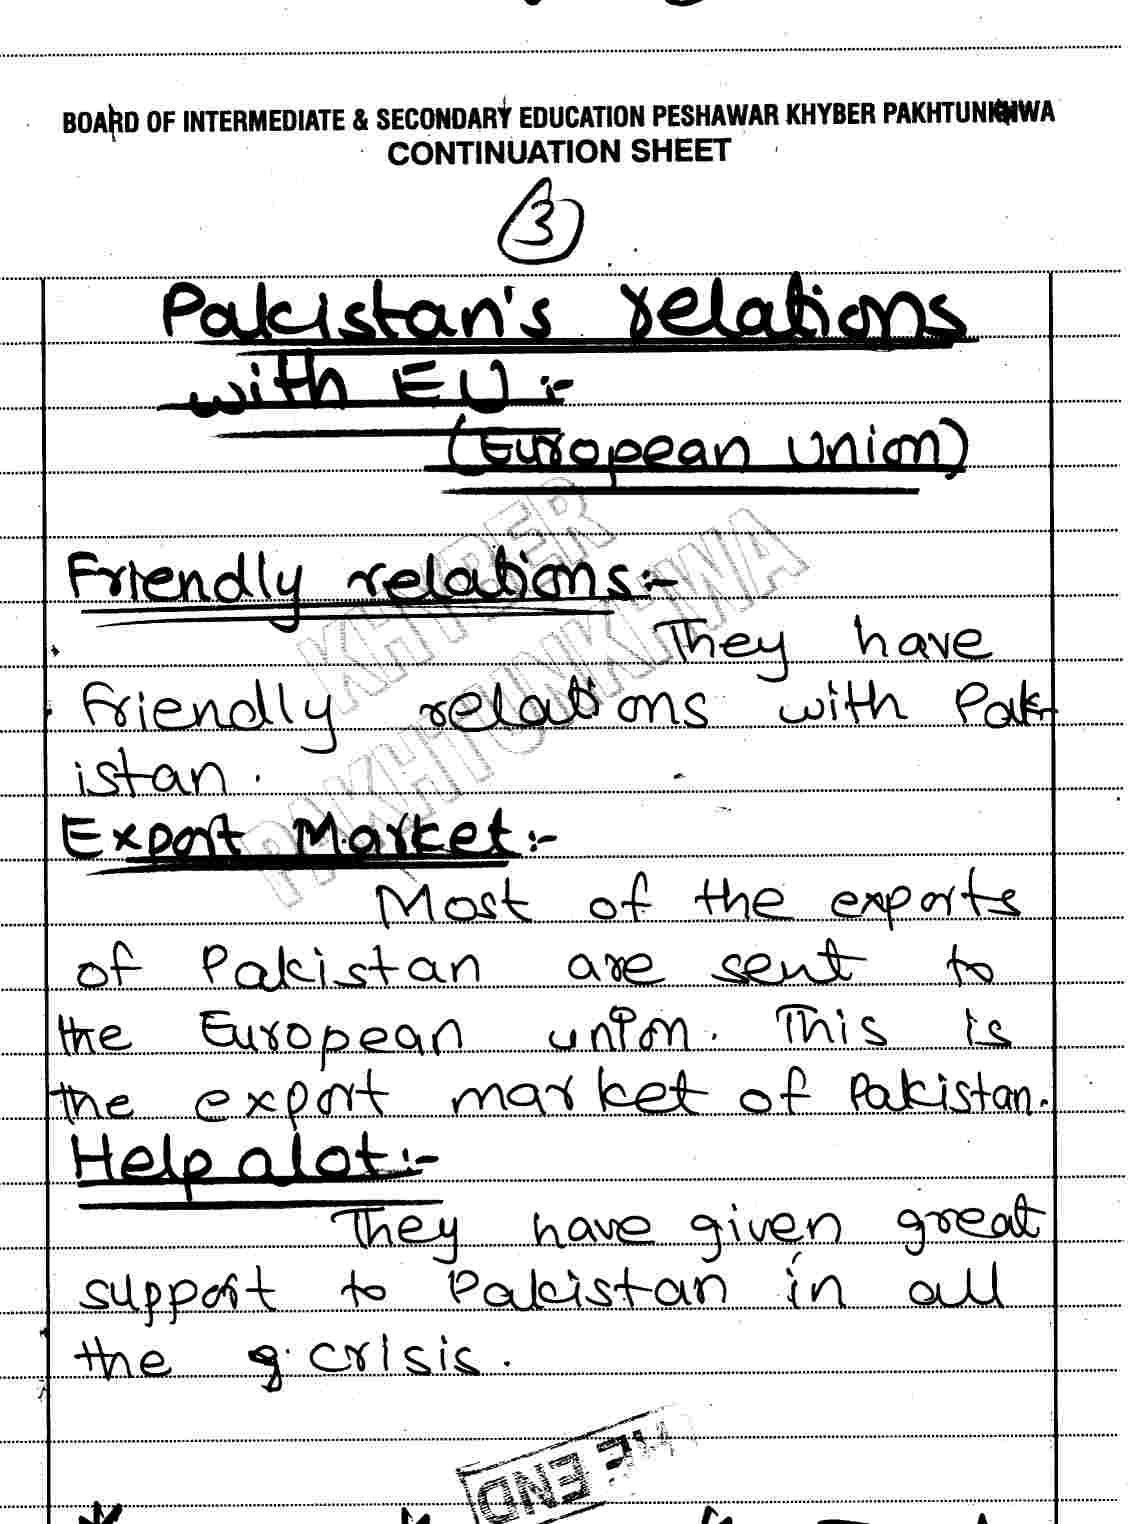 BOARD OF INTERMEDIATE & SECONDARY EDUCATION PESHAWAR KHYBER PAKHTUNKHWA
CONTINUATION SHEET
3
Pakistan's relations
with EU:-
(European Union)
KHYBER
PAKHTUNKHWA
Friendly relations:-
They have
friendly relations with Pak-
istan.
Export Market:-
Most of the exports
of Pakistan are sent to
the European union. This is
the export market of Pakistan.
Help alot:-
They have given great
support to Pakistan in all
the crisis.
THE END